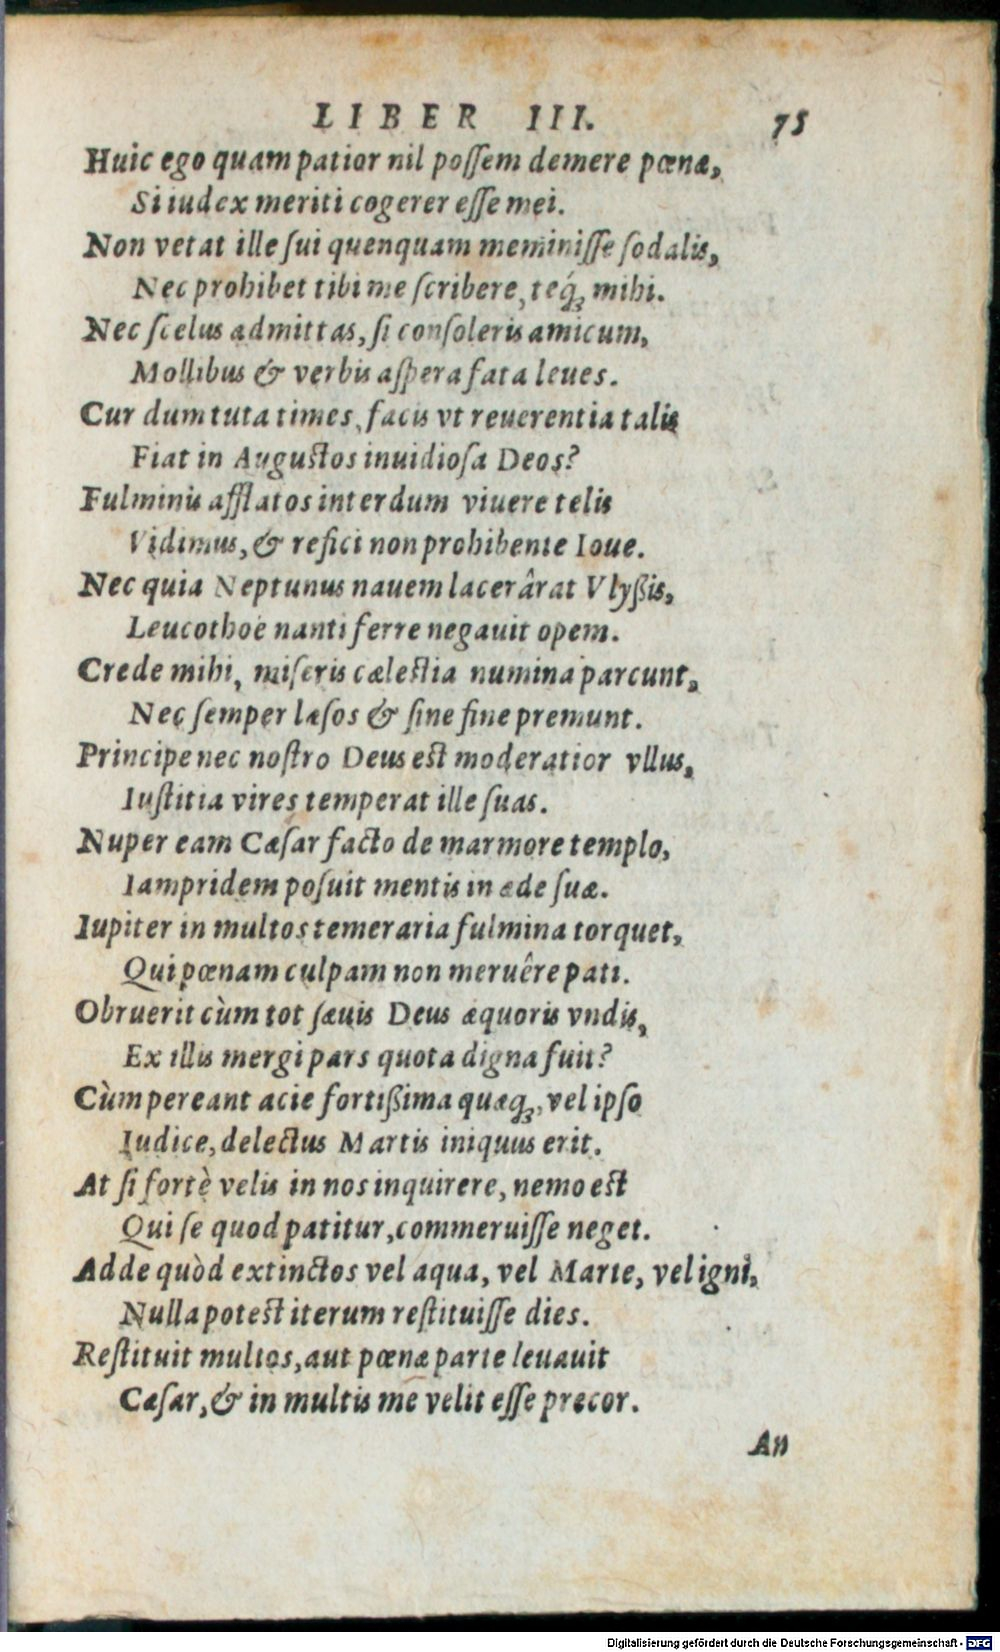 LIBER III. 75
Huic ego quam patior nil possem demere pœnæ,
Si iudex meriti cogerer esse mei.
Non vetat ille sui quenquam meminisse sodalis,
Nec prohibet tibi me scribere, teq́ꝫ mihi.
Nec scelus admittas, si consoleris amicum,
Mollibus & verbis aspera fata leues.
Cur dum tuta times, facis vt reuerentia talis
Fiat in Augustos inuidiosa Deos?
Fulminis afflatos interdum viuere telis
Vidimus, & refici non prohibente Ioue.
Nec quia Neptunus nauem lacerârat Vlyßis,
Leucothoë nanti ferre negauit opem.
Crede mihi, miseris cælestia numina parcunt,
Nec semper læsos & sine fine premunt.
Principe nec nostro Deus est moderatior vllus,
Iustitia vires temperat ille suas.
Nuper eam Cæsar facto de marmore templo,
Iampridem posuit mentis in æde suæ.
Iupiter in multos temeraria fulmina torquet,
Qui pœnam culpam non meruêre pati.
Obruerit cùm tot sæuis Deus æquoris vndis,
Ex illis mergi pars quota digna fuit?
Cùm pereant acie fortißima quæqꝫ, vel ipso
Iudice, delectus Martis iniquus erit.
At si fortè velis in nos inquirere, nemo est
Qui se quod patitur, commeruisse neget.
Adde quòd extinctos vel aqua, vel Marte, vel igni,
Nulla potest iterum restituisse dies.
Restituit multos, aut pœnæ parte leuauit
Cæsar, & in multis me velit esse precor.
An
Digitalisierung gefördert durch die Deutsche Forschungsgemeinschaft - DFG